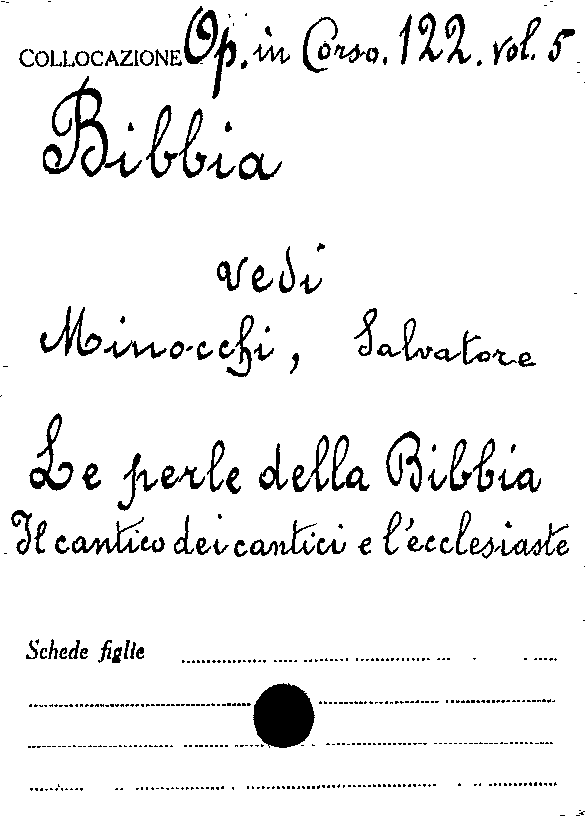 COLLOCAZIONE Op. in Corso. 122. vol. 5
Bibbia
vedi
Minocchi, Salvatore
Le perle della Bibbia
Il cantico dei cantici e l'ecclesiaste
Schede figlie